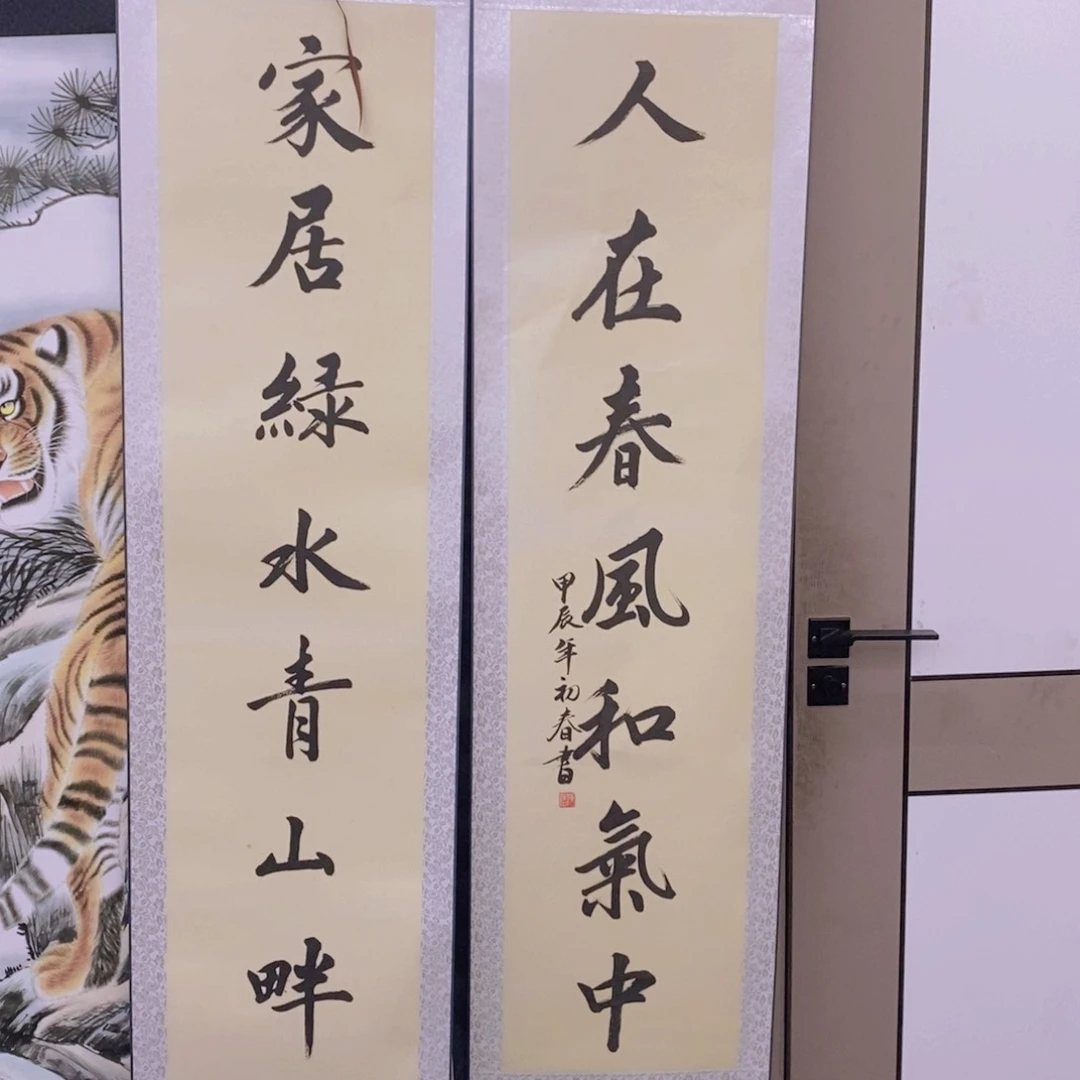 家居緑水青山畔
人在春風和氣中
甲辰年初春書